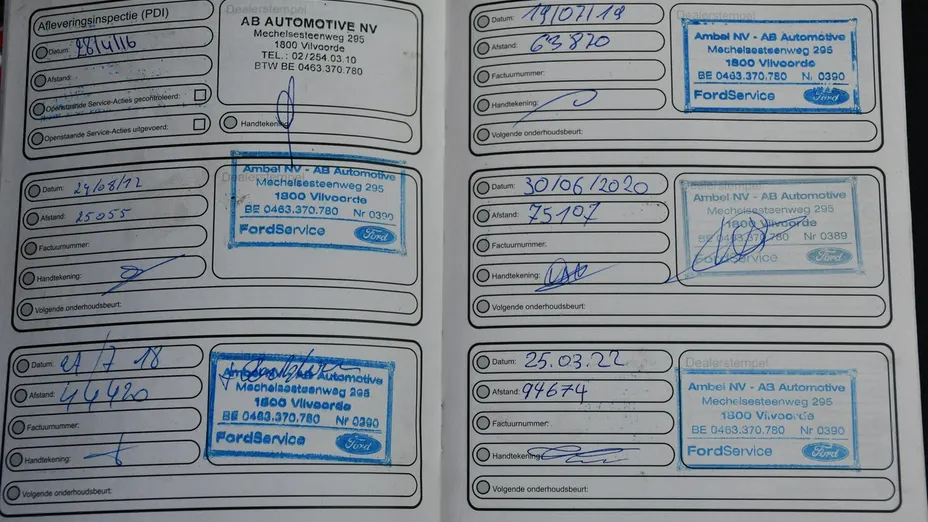 Afleveringsinspectie (PDI)
Datum: 28/4/16
Afstand:
Openstaande Service-Acties gecontroleerd:
Openstaande Service-Acties uitgevoerd:
Dealerstempel
AB AUTOMOTIVE NV
Mechelsesteenweg 295
1800 Vilvoorde
TEL.: 02/254.03.10
BTW BE 0463.370.780
Handtekening
Datum:
Afstand: 25055
Factuurnummer:
Handtekening:
Volgende onderhoudsbeurt:
Dealerstempel
Ambel NV - AB Automotive
Mechelsesteenweg 295
1800 Vilvoorde
BE 0463.370.780 Nr 0390
FordService Ford
Datum: 21/7 18
Afstand: 44420
Factuurnummer:
Handtekening:
Volgende onderhoudsbeurt:
Ambel NV - AB Automotive
Mechelsesteenweg 295
1800 Vilvoorde
BE 0463.370.780 Nr 0390
FordService Ford
Datum: 19/07/19
Afstand: 63820
Factuurnummer:
Handtekening:
Volgende onderhoudsbeurt:
Dealerstempel
Ambel NV - AB Automotive
Mechelsesteenweg 295
1800 Vilvoorde
BE 0463.370.780 Nr 0390
FordService Ford
Datum: 30/06/2020
Afstand: 75107
Factuurnummer:
Handtekening:
Volgende onderhoudsbeurt:
Dealerstempel
Ambel NV - AB Automotive
Mechelsesteenweg 295
1800 Vilvoorde
BE 0463.370.780 Nr 0389
FordService Ford
Datum: 25.03.22
Afstand: 94674
Factuurnummer:
Handtekening:
Volgende onderhoudsbeurt:
Dealerstempel
Ambel NV - AB Automotive
Mechelsesteenweg 295
1800 Vilvoorde
BE 0463.370.780 Nr 0390
FordService Ford